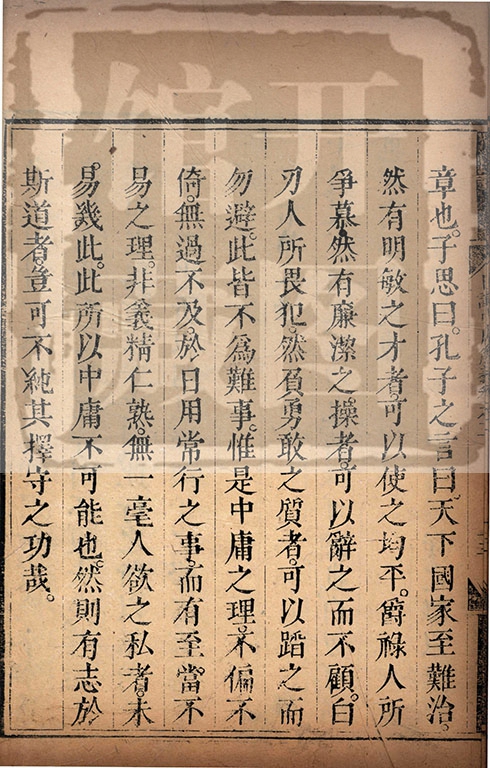 章也。子思曰。孔子之言曰。天下國家至難治。
然有明敏之才者。可以使之均平。爵祿人所
爭慕。然有廉潔之操者。可以辭之而不顧。白
刃人所畏犯。然負勇敢之質者。可以蹈之而
勿避。此皆不爲難事。惟是中庸之理。不偏不
倚。無過不及。於日用常行之事。而有至當不
易之理。非義精仁熟。無一毫人欲之私者。未
易幾此。此所以中庸不可能也。然則有志於
斯道者。豈可不純其擇守之功哉。